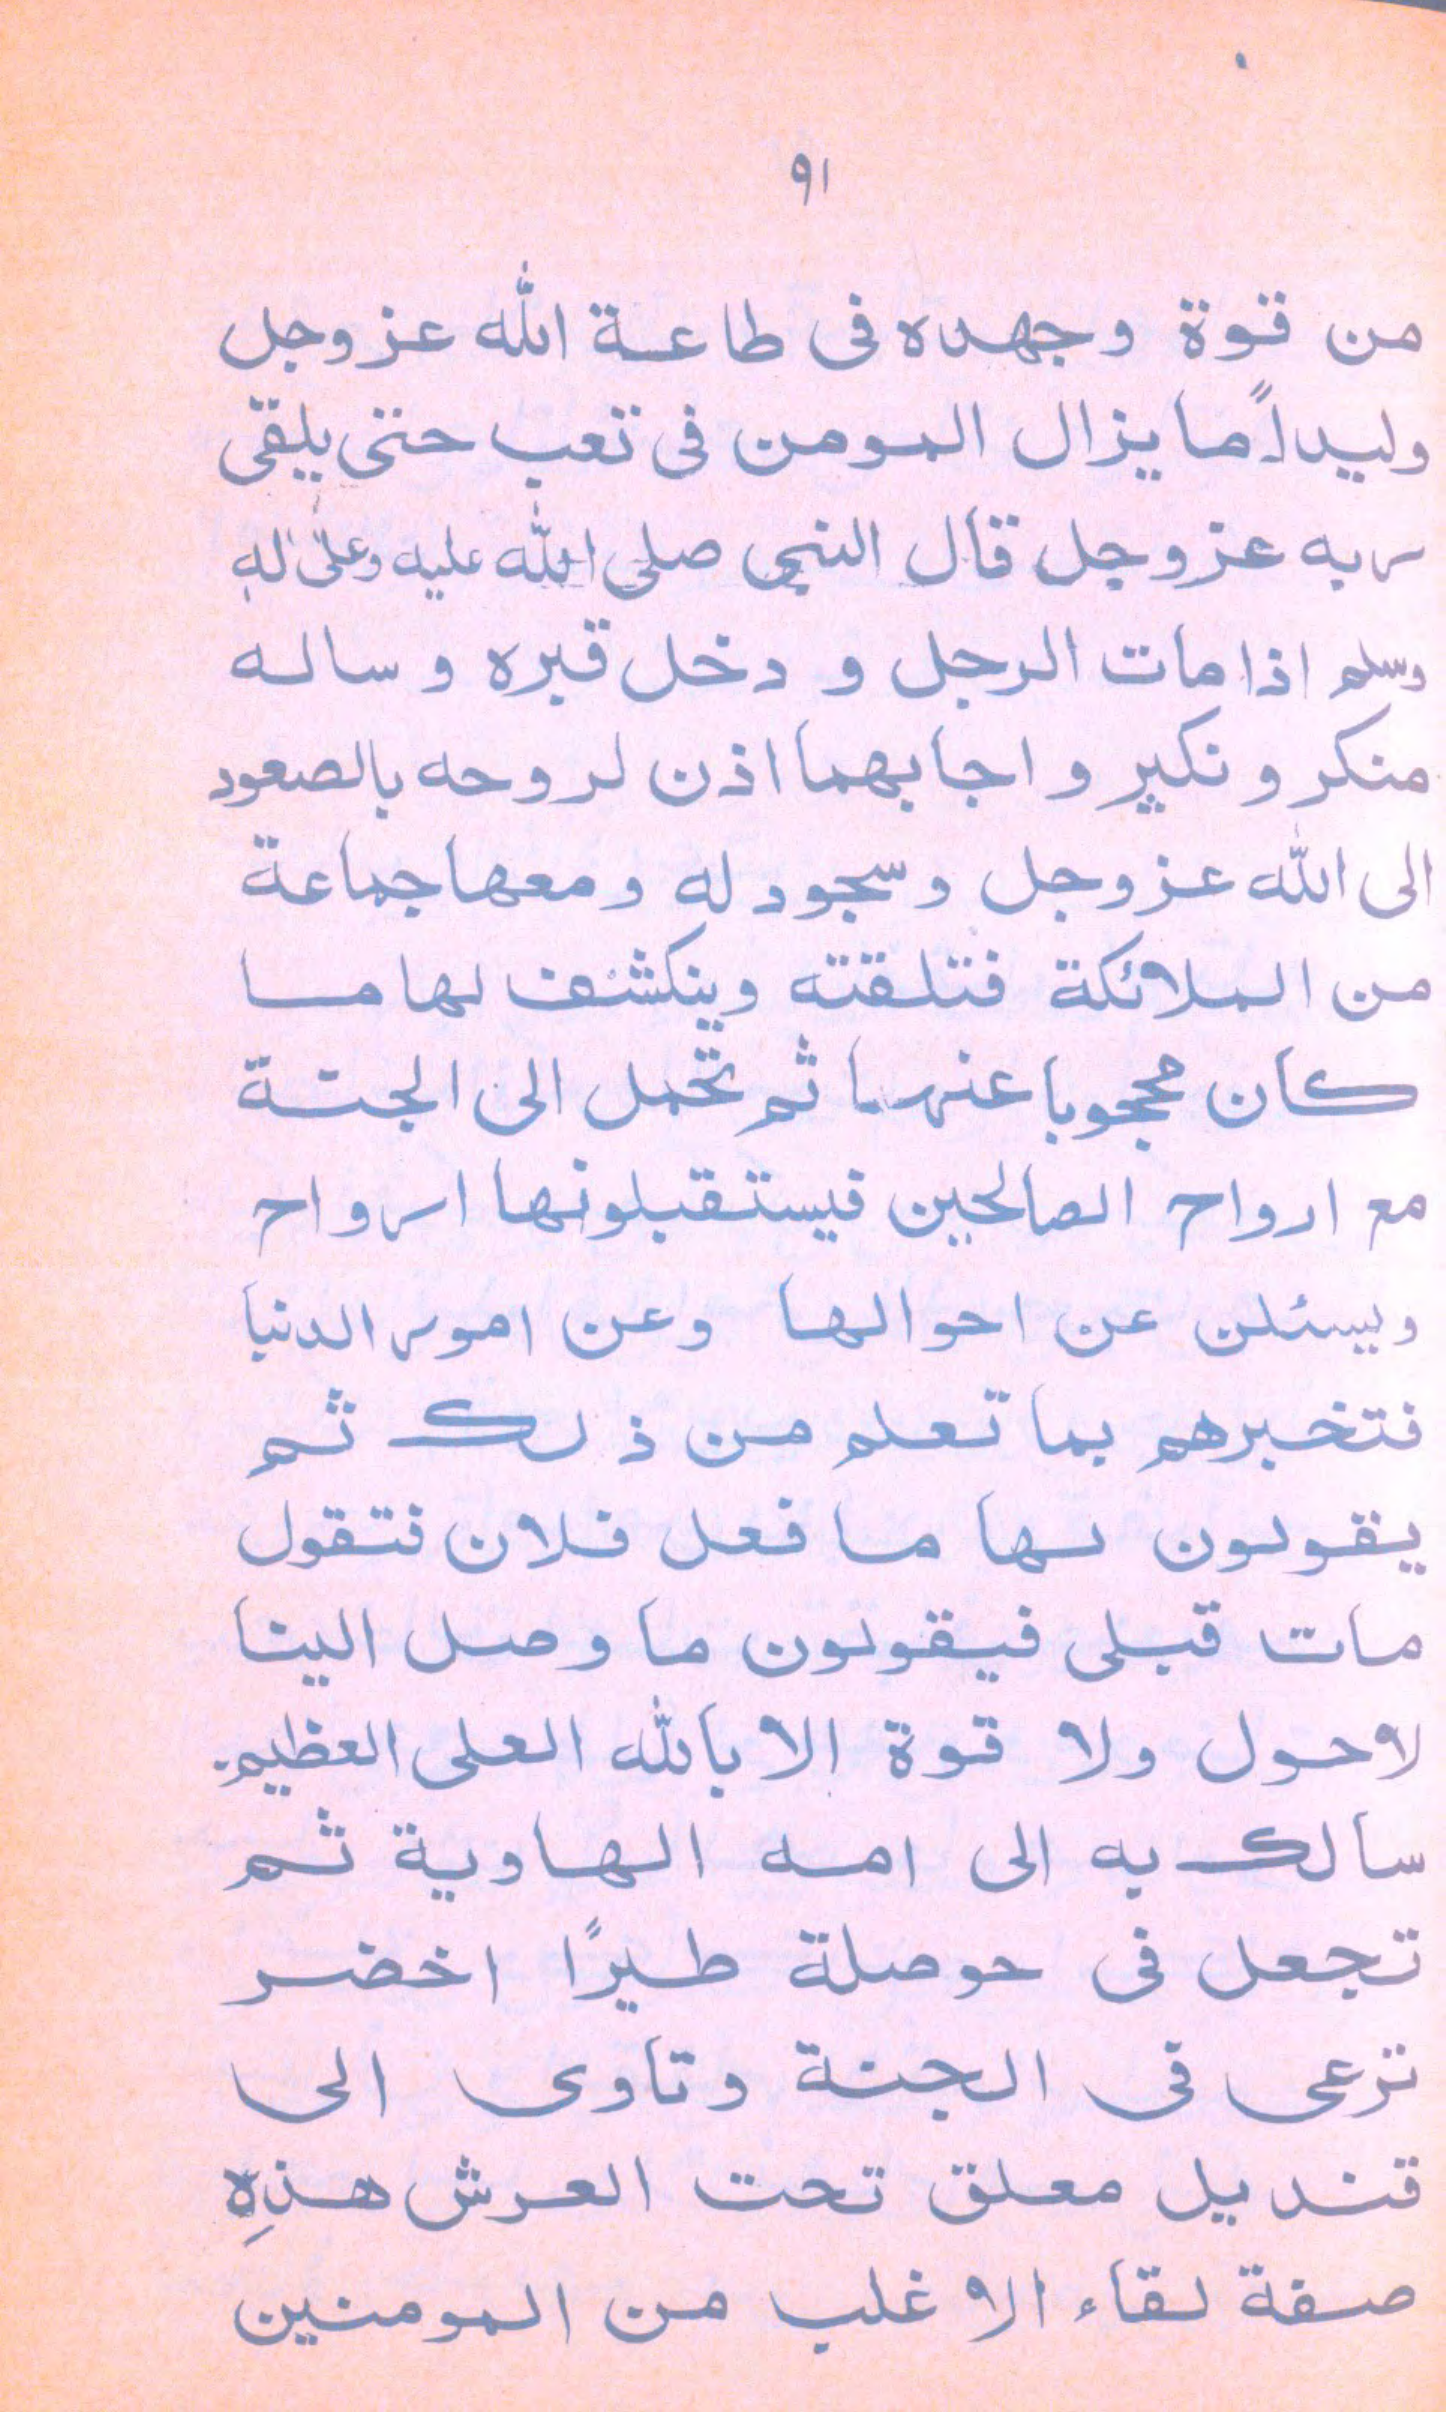 ٩١
من قوة وجهده فى طاعة الله عز وجل
وليداً ما يزال المومن فى تعب حتى يلقى
ربه عز وجل قال النبى صلى الله عليه وعلى اله
وسلم اذا مات الرجل و دخل قبره و ساله
منكر و نكير و اجابهما اذن لروحه بالصعود
الى الله عز وجل وسجود له ومعها جماعة
من الملائكة فتلقته وينكشف لها ما
كان محجوبا عنها ثم تحمل الى الجنة
مع ارواح الصالحين فيستقبلونها ارواح
ويسئلن عن احوالها وعن امور الدنيا
فتخبرهم بما تعلم من ذلك ثم
يقولون لها ما فعل فلان فتقول
مات قبلى فيقولون ما وصل الينا
لا حول ولا قوة الا بالله العلى العظيم.
سالك به الى امه الهاوية ثم
تجعل فى حوصلة طيرًا اخضر
ترعى فى الجنة وتاوى الى
قنديل معلق تحت العرش هذِه
صفة لقاء الاغلب من المومنين